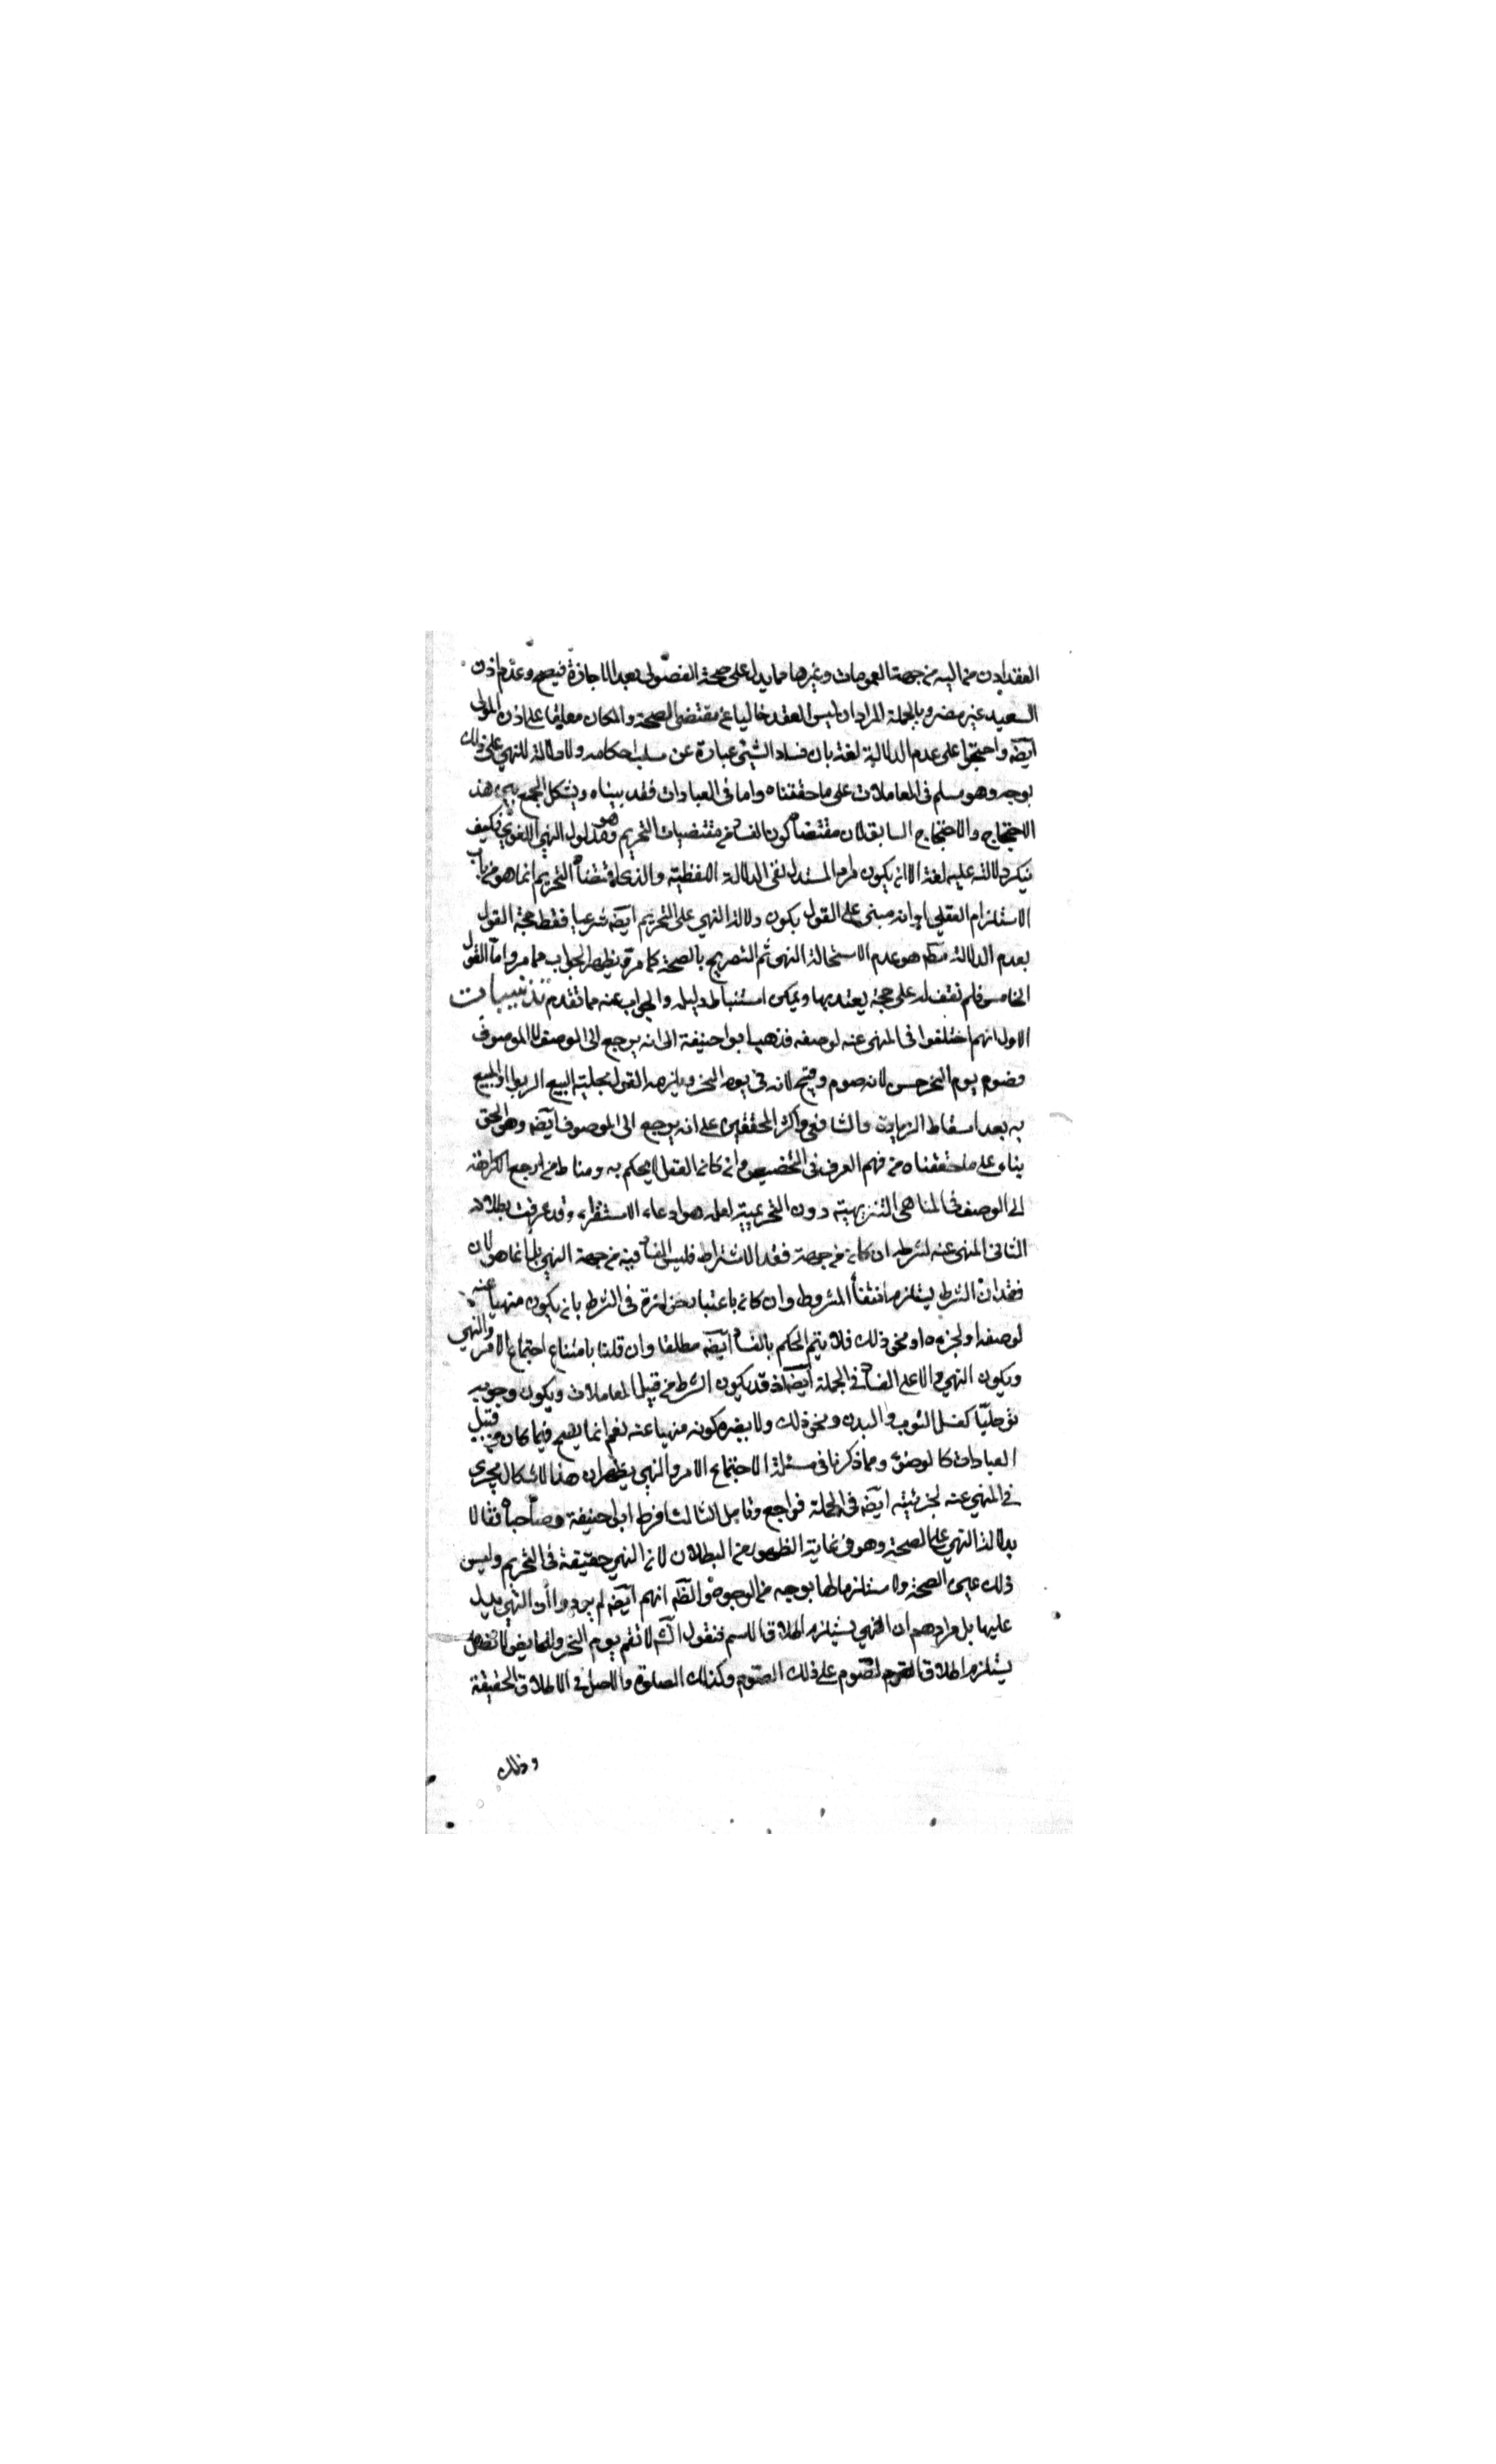 العقد اذن من اليه من جهة العمومات وغيرها مما يدل على صحة الفضولى بعد الاجازة فيصح وعدم اذن
السيد غير مضر وبالجملة المراد ان ليس العقد خاليا عن مقتضى الصحة وان كان معلقا على اذن المولى
ايضه واحتجوا على عدم الدلالة لغة بان فساد الشيئ عبارة عن سلب احكامه ولا دلالة للنهى على ذلك
بوجه وهو مسلم فى المعاملات على ما حققناه واما فى العبادات فقد بيناه ويشكل الجمع بين هذا
الاحتجاج والاحتجاج السابق لان مقتضاه كون الفساد من مقتضيات التحريم وهو مدلول النهى اللغوى فكيف
ينكر دلالته عليه لغة الا ان يكون مراد المستدل نفى الدلالة اللفظية والذى اقتضاه التحريم انما هو من باب
الاستلزام العقلى او انه مبنى على القول بكون دلالة النهى على التحريم ايضه شرعيا فقط حجة القول
بعدم الدلالة مطم هو عدم الاستحالة النهى ثم التصريح بالصحة كما مر ويظهر الجواب مما مر واما القول
الخامس فلم نقف له على حجة يعتد بها ويمكن استنباط دليله والجواب عنه مما تقدم تذنيبات
الاول انهم اختلفوا فى المنهى عنه لوصفه فذهب ابو حنيفة الى انه يرجع الى الوصف لا الموصوف
فصوم يوم النحر حسن لانه صوم وقبيح لانه فى يوم النحر ويلزمه القول بحلية البيع الربوا والمبيع
به بعد اسقاط الزيادة والشافعى واكثر المحققين على انه يرجع الى الموصوف ايضه وهو الحق
بناء على ما حققناه من فهم العرف فى التخصيص وان كان العقل لا يحكم به ومناط من ارجع الكراهة
الى الوصف فى المناهى التنزيهية دون التحريمية لعله هو ادعاء الاستقراء وقد عرفت بطلانه
الثانى المنهى عنه لشرطه ان كان من جهة فقد الاشتراط فليس الفساد فيه من جهة النهى بل انما هو لان
فقدان الشرط يستلزم انتفاء المشروط وان كان باعتبار حزازة فى الشرط بان يكون منهيا عنه
لوصفه او لجزءه او نحو ذلك فلا يتم الحكم بالفساد ايضه مطلقا وان قلنا بامتناع اجتماع الامر والنهى
ويكون النهى دالا على الفساد فى الجملة ايضه اذ قد يكون الشرط من قبيل المعاملات ويكون وجوبه
توصليا كغسل الثوب والبدن ونحو ذلك ولا يضره كونه منهيا عنه نعم انما يصح فيما كان من قبيل
العبادات كالوضوء ومما ذكرنا فى مسئلة الاجتماع الامر والنهى يظهر ان هذا الاشكال يجرى
فى المنهى عنه لجزئيته ايضه فى الجملة فراجع وتامل الثالث افرط ابو حنيفة وصاحباه فقالا
بدلالة النهى على الصحة وهو فى غاية الظهور من البطلان لان النهى حقيقة فى التحريم وليس
ذلك عين الصحة ولا مستلزما لها بوجه من الوجوه والظه انهم ايضه لم يريدوا ان النهى يدل
عليها بل مرادهم ان النهى يستلزم اطلاق الاسم فنقول الش لا تصم يوم النحر وللحايض لا تصل
يستلزم اطلاق الصوم على ذلك الصوم وكذلك الصلوة والاصل فى الاطلاق الحقيقة
وذلك